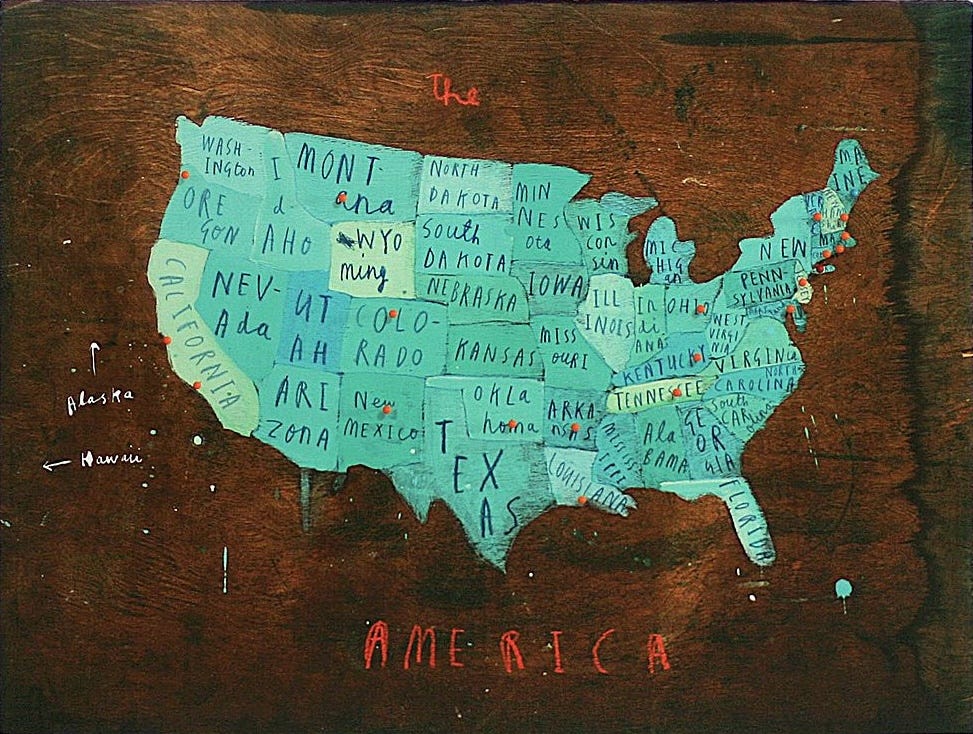 The
WASH-
INGton
ORE
GON
I
d
AHO
MONT-
ana
NORTH
DAKOTA
South
DAKOTA
WYO
ming
NEBRASKA
MIN
NES
ota
WIS
con
sin
MIC
HIG
an
IOWA
ILL
INOES
In
di
ANA
OHIO
MA
INE
NEW
PENN-
SYLVANIA
CALIFORNIA
NEV-
Ada
UT
AH
COLO-
RADO
KANSAS
MISS
OURI
KENTUCKY
WEST
VIRGI
NIA
VIRGINIA
TENNESSEE
NORTH
CAROLINA
South
CAROLINA
ARI
ZONA
New
MEXICO
OKLA
homa
ARKA
nsas
T
EX
AS
LOUISIANA
MISSISS
IPPI
Ala
BAMA
GE
OR
GIA
FLORIDA
Alaska
Hawaii
AMERICA